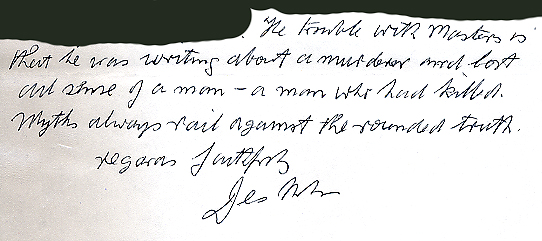 The trouble with Masters is
that he was writing about a murderer and lost
all sense of a man – a man who had killed.
Myths always rail against the rounded truth.
regards faithfully
Des